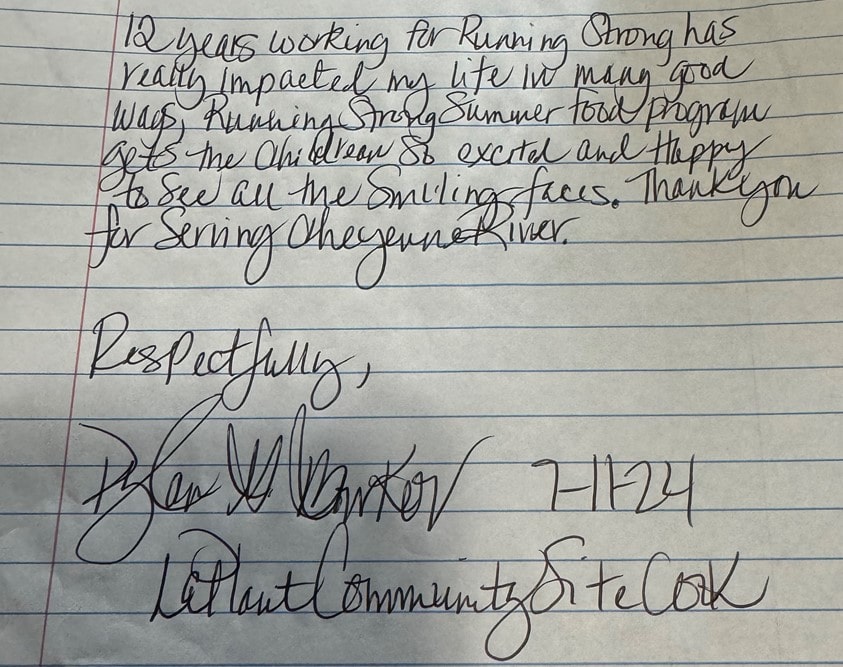 12 years working for Running Strong has
really impacted my life in many good
ways, Running Strong Summer food program
gets the Childrean so excited and Happy
to See all the Smiling faces. Thank you
for Serving Cheyenne River.
Respectfully,
7-11-24
LaPlant Community Site Cook